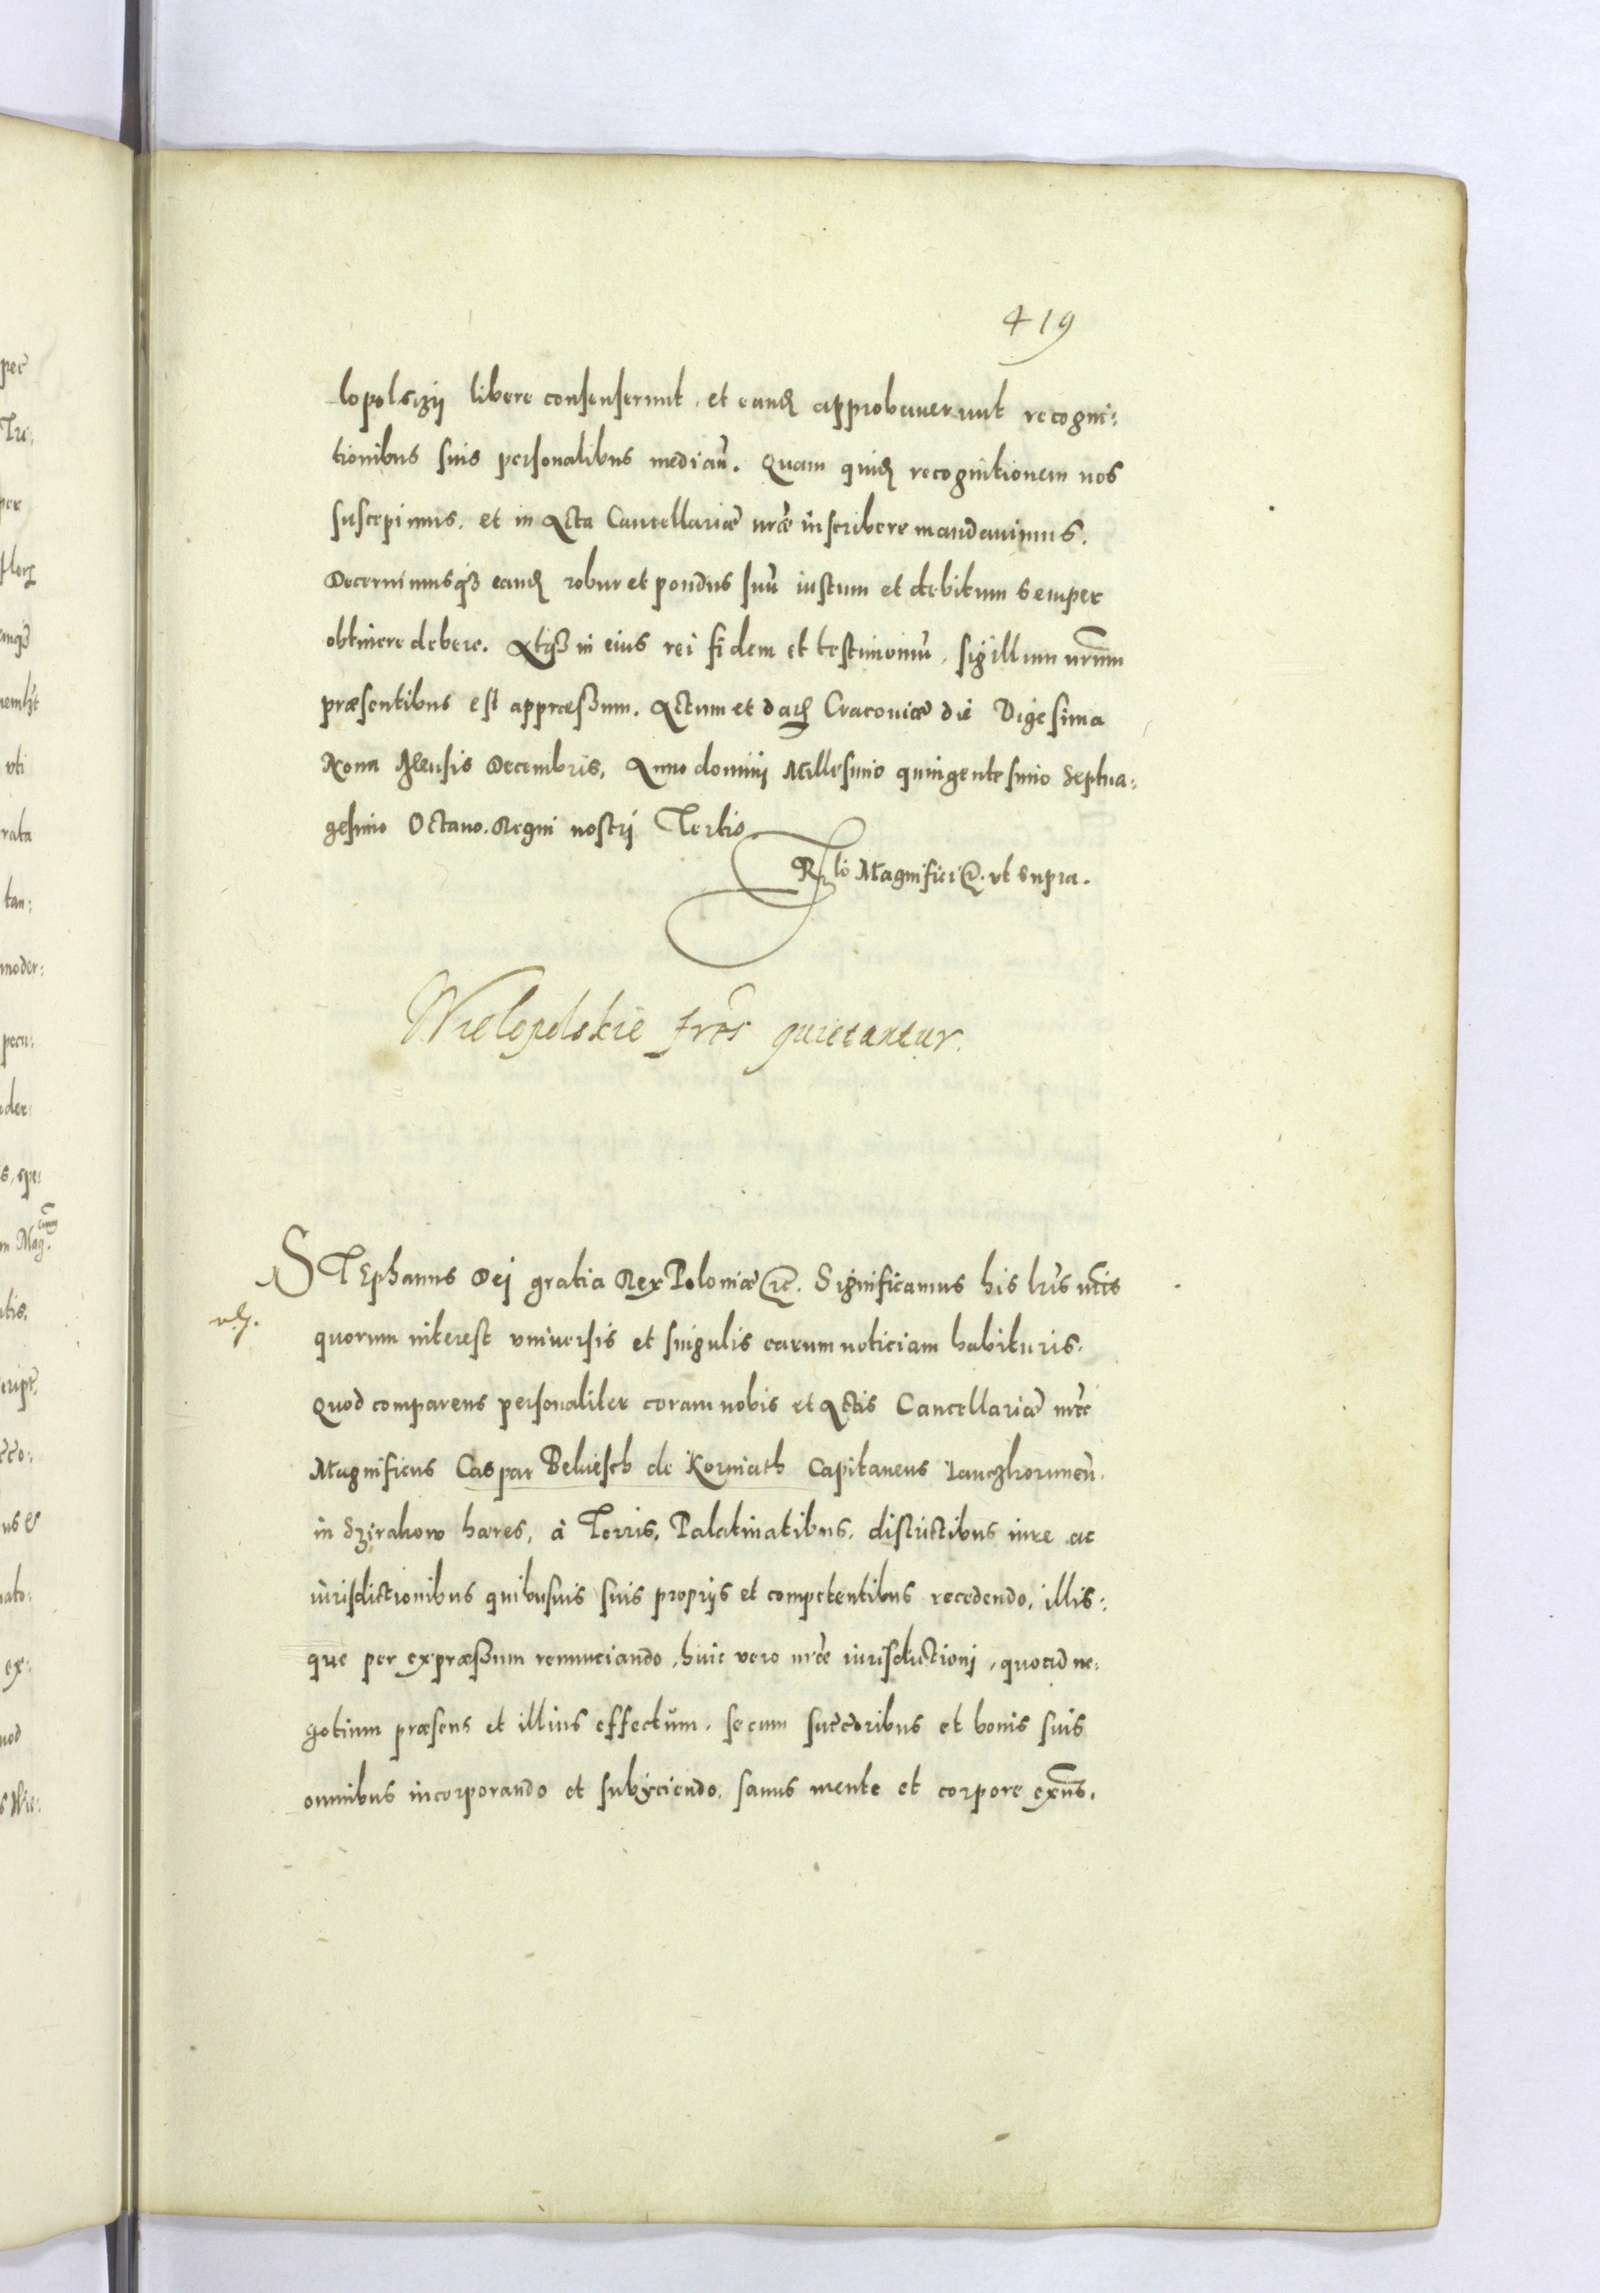 419
lopolsczÿ libere consenserunt, et eand approbauerunt recogni:
tionibus suis personalibus median̄. Quam quid recognitionem nos
suscepimus, et in Acta Cancellariæ nr̄æ inscribere mandauimus.
Decernimusq3 eand robur et pondus suū iustum et debitum semper
obtinere debere. Atq3 in eius rei fidem et testimoniū, sigillum nr̄um
præsentibus est appræssum. Actum et dat Cracouiæ die Vigesima
Nona Mensis Decembris, Anno dominj Millesimo quingentesimo Septua:
gesimo Octauo. Regni nostrj Tertio
Rlō Magnifici &c. vt supra.
Wielopolskie fr̄es quietantur.
STEphanus Dej gratia Rex Poloniæ &c. Significamus his lr̄is nr̄is
quorum interest vniuersis et singulis earum noticiam habituris.
Quod comparens personaliter coram nobis et Actis Cancellariæ nr̄æ
Magnificus Caspar Bekiesch de Korniath Capitaneus Lanczkorunen̄.
in Szirakow hæres, à Terris, Palatinatibus, districtibus iure ac
iurisdictionibus quibusuis suis proprÿs et competentibus recedendo, illis:
que per expræssum renunciando, huic vero nr̄æ iurisdictionj, quoad ne:
gotium præsens et illius effectum, se cum succ̄oribus et bonis suis
omnibus incorporando et subÿciendo, sanus mente et corpore exn̄s,